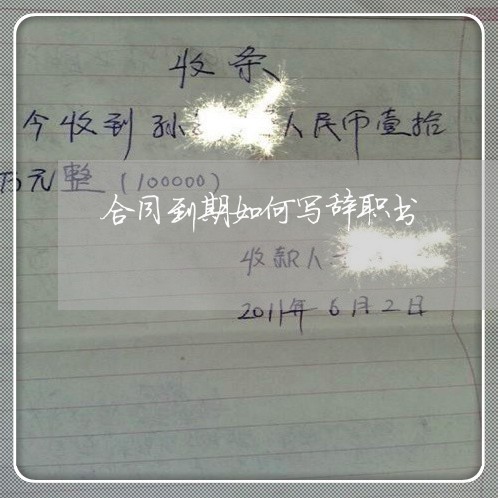 收条
今收到孙 人民币壹拾
万元整(100000)
合同到期如何写辞职书
收款人
2011年6月2日